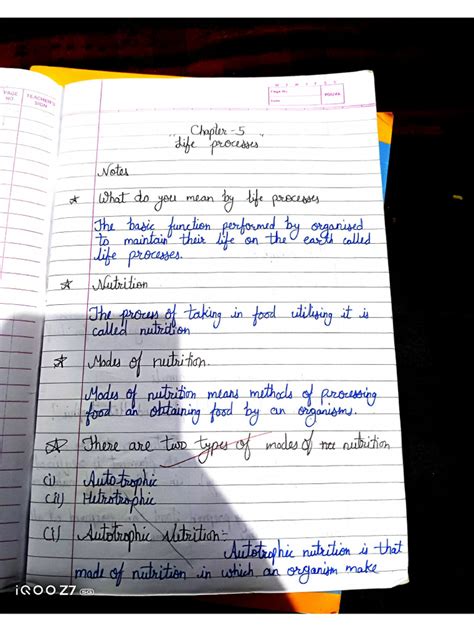 PAGE NO.
TEACHER'S SIGN
YOUVA
Chapter - 5
"Life processes"
Notes
What do you mean by life processes
The basic function performed by organised
to maintain their life on the earth called
life processes.
Nutrition
The process of taking in food utilising it is
called nutrition
Modes of nutrition.
Modes of nutrition means methods of processing
food an obtaining food by an organisms.
There are two types of modes of nutrition
(i) Autotrophic
(ii) Hetrotrophic
(i) Autotrophic Nutrition:-
Autotrophic nutrition is that
mode of nutrition in which an organism make
iQOO Z7 5G